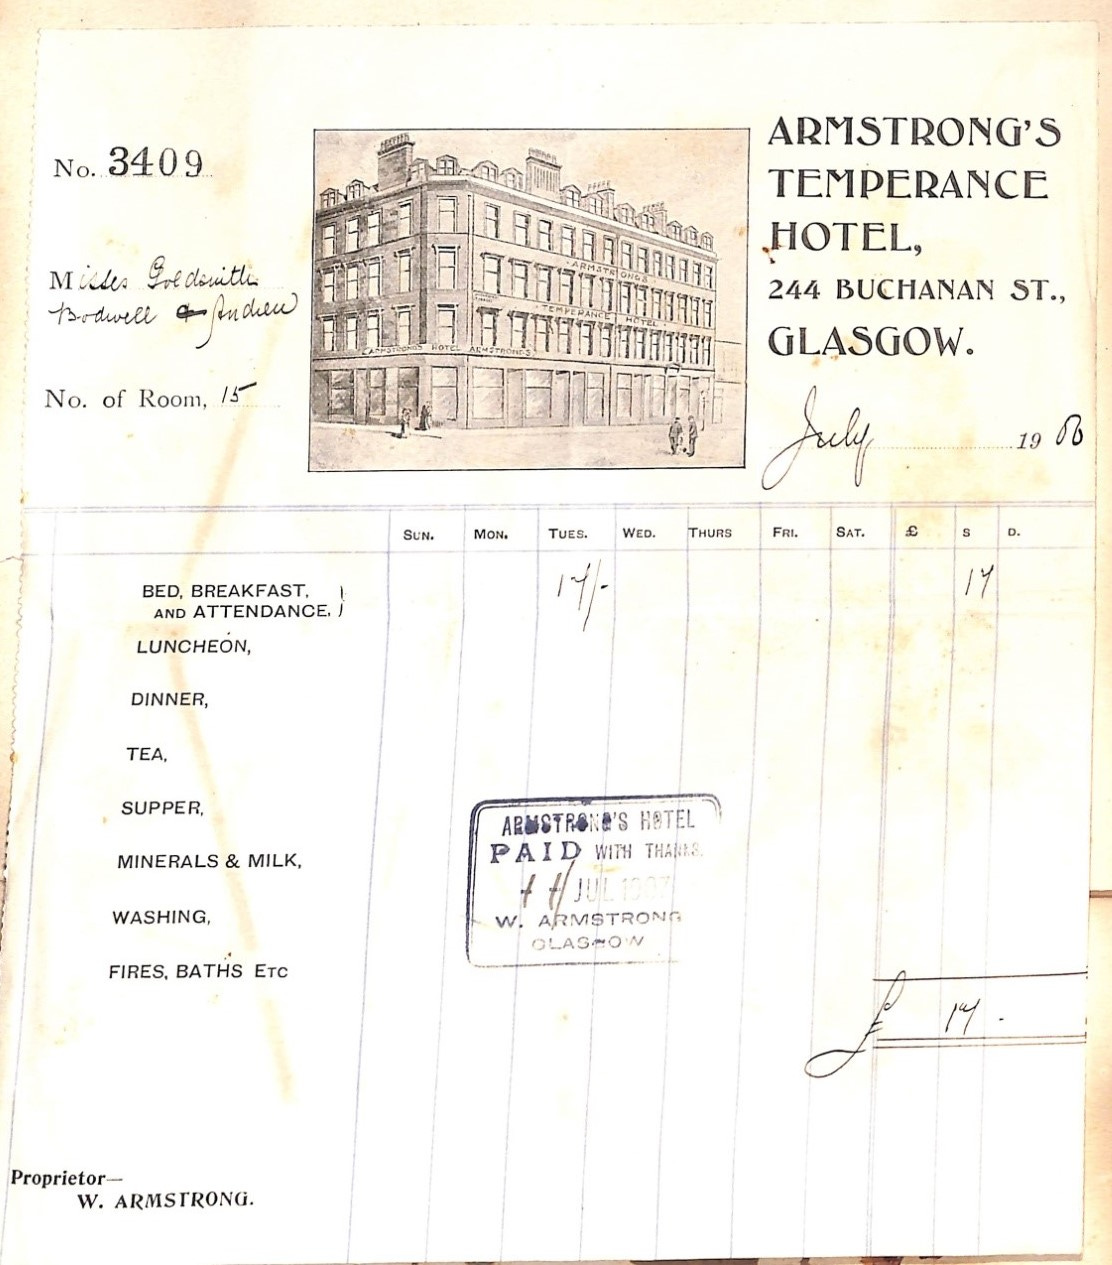 No. 3409
Misses Goldsmith
Bodwell & Andrew
No. of Room, 15
ARMSTRONG'S
TEMPERANCE HOTEL
ARMSTRONGS HOTEL ARMSTRONG'S
ARMSTRONG'S
TEMPERANCE
HOTEL,
244 BUCHANAN ST.,
GLASGOW.
July 19
SUN. MON. TUES. WED. THURS FRI. SAT. £ S D.
BED, BREAKFAST, 17/- 17
AND ATTENDANCE,
LUNCHEON,
DINNER,
TEA,
SUPPER,
MINERALS & MILK,
WASHING,
FIRES, BATHS ETC
ARMSTRONG'S HOTEL
PAID WITH THANKS.
JUL 1907
W. ARMSTRONG
GLASGOW
£ 17 .
Proprietor—
W. ARMSTRONG.